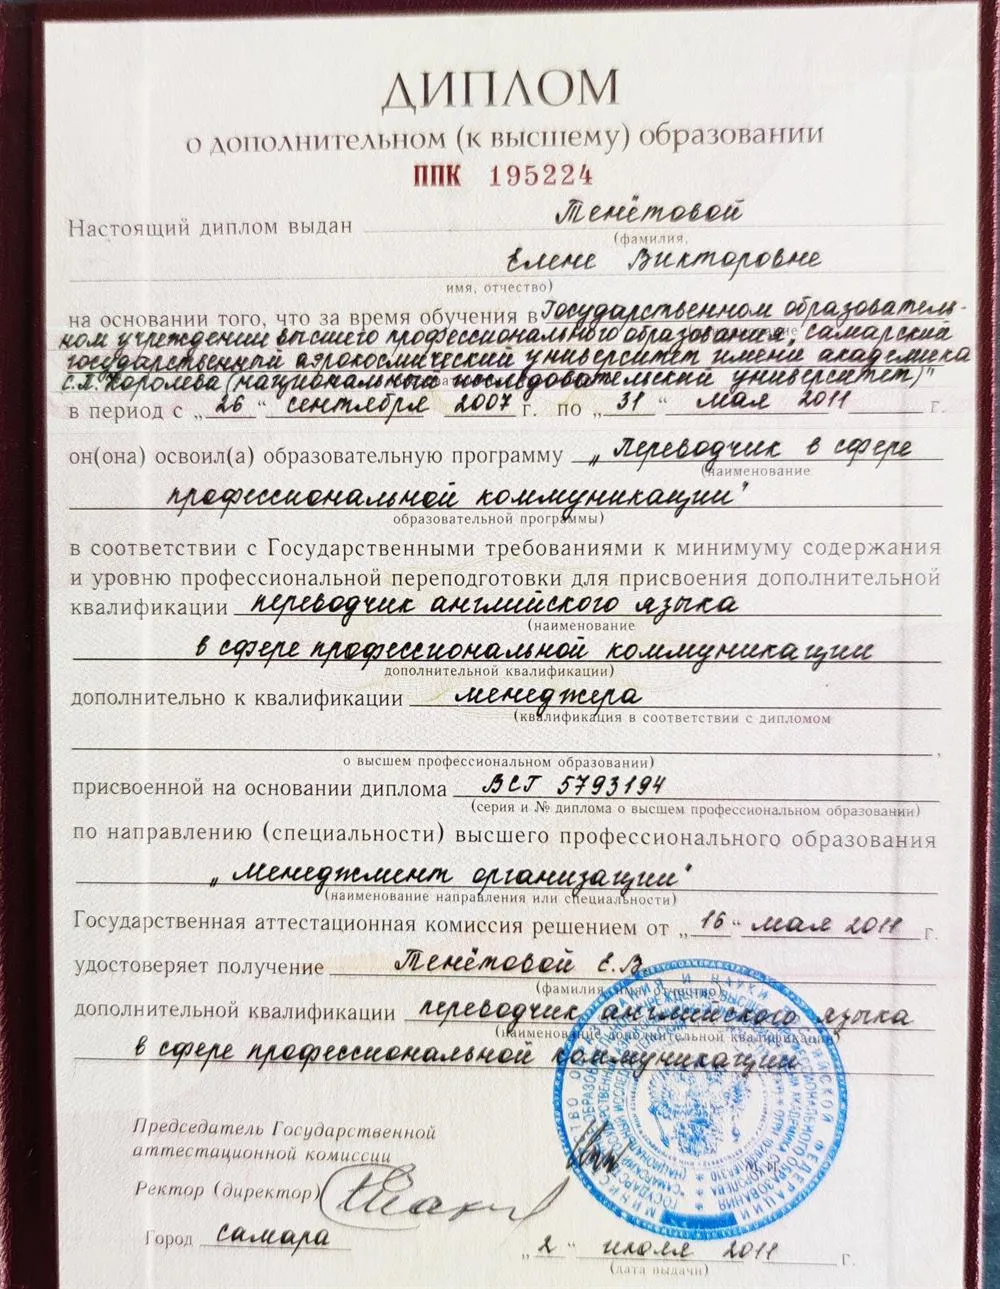 ДИПЛОМ
о дополнительном (к высшему) образовании
ППК 195224
Настоящий диплом выдан Тенётовой
(фамилия,
Елене Викторовне
имя, отчество)
на основании того, что за время обучения в Государственном образователь-
ном учреждении высшего профессионального образования, "Самарский
государственный аэрокосмический университет имени академика
С.П. Королева (национальный исследовательский университет)"
в период с „26“ сентября 2007 г. по „31“ мая 2011 г.
он(она) освоил(а) образовательную программу „Переводчик в сфере
(наименование
профессиональной коммуникации"
образовательной программы)
в соответствии с Государственными требованиями к минимуму содержания
и уровню профессиональной переподготовки для присвоения дополнительной
квалификации переводчик английского языка
(наименование
в сфере профессиональной коммуникации
дополнительной квалификации)
дополнительно к квалификации менеджера
(квалификация в соответствии с дипломом
о высшем профессиональном образовании)
присвоенной на основании диплома ВСГ 5793194
(серия и № диплома о высшем профессиональном образовании)
по направлению (специальности) высшего профессионального образования
„Менеджмент организации"
(наименование направления или специальности)
Государственная аттестационная комиссия решением от „16“ мая 2011 г.
удостоверяет получение Тенётовой Е.В.
(фамилия, имя, отчество)
дополнительной квалификации переводчик английского языка
(наименование дополнительной квалификации)
в сфере профессиональной коммуникации
Председатель Государственной
аттестационной комиссии
Ректор (директор)
Город Самара
„2“ июля 2011 г.
(дата выдачи)